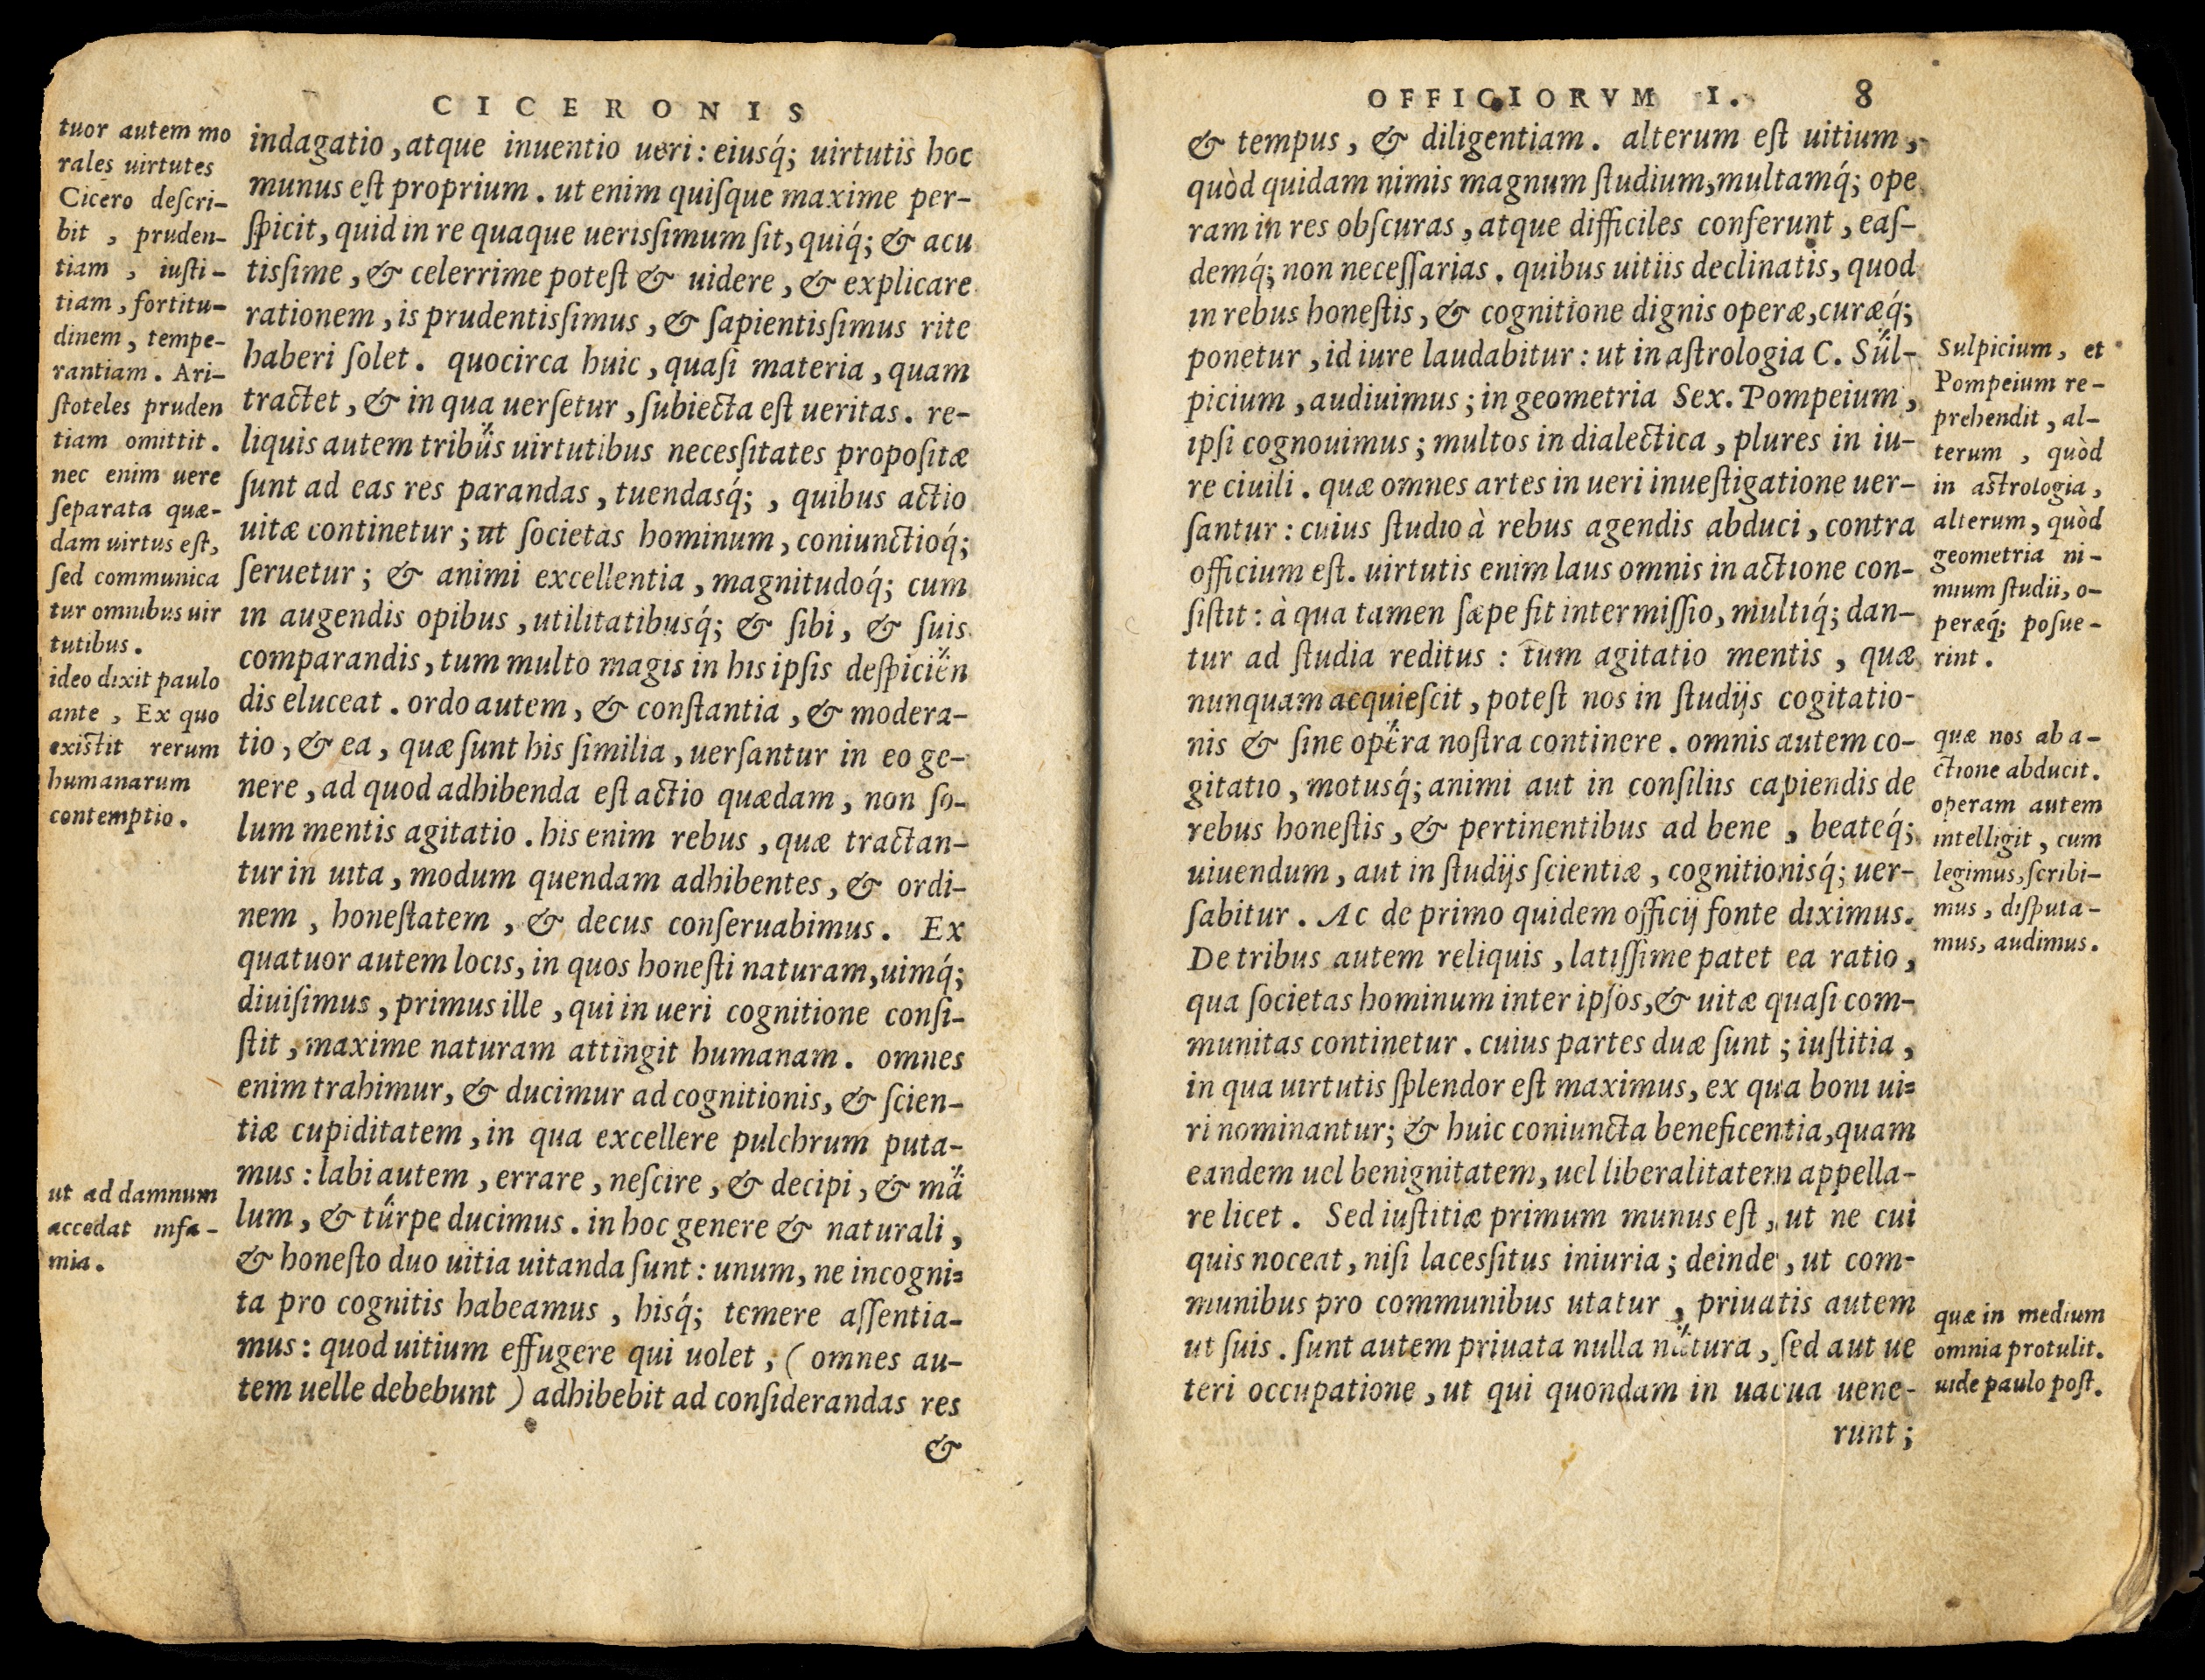 CICERONIS
tuor autem mo
rales uirtutes
Cicero deſcri-
bit , pruden-
tiam , iuſti-
tiam, fortitu-
dinem, tempe-
rantiam. Ari-
ſtoteles pruden
tiam omittit.
nec enim uere
ſeparata quæ-
dam uirtus eſt,
ſed communica
tur omnibus uir
tutibus.
ideo dixit paulo
ante , Ex quo
existit rerum
humanarum
contemptio.
ut ad damnum
accedat infa-
mia.
indagatio, atque inuentio ueri: eiusq́; uirtutis hoc
munus eſt proprium. ut enim quiſque maxime per-
ſpicit, quid in re quaque uerisſimum ſit, quiq́; & acu
tisſime, & celerrime poteſt & uidere, & explicare
rationem, is prudentisſimus, & ſapientisſimus rite
haberi ſolet. quocirca huic, quaſi materia, quam
tractet, & in qua uerſetur, ſubiecta eſt ueritas. re-
liquis autem tribus uirtutibus necesſitates propoſitæ
ſunt ad eas res parandas, tuendasq́; , quibus actio
uitæ continetur; ut ſocietas hominum, coniunctioq́;
ſeruetur; & animi excellentia, magnitudoq́; cum
in augendis opibus, utilitatibusq́; & ſibi, & ſuis
comparandis, tum multo magis in his ipſis deſpicien
dis eluceat. ordo autem, & conſtantia, & modera-
tio, & ea, quæ ſunt his ſimilia, uerſantur in eo ge-
nere, ad quod adhibenda eſt actio quædam, non ſo-
lum mentis agitatio. his enim rebus, quæ tractan-
tur in uita, modum quendam adhibentes, & ordi-
nem, honeſtatem, & decus conſeruabimus. Ex
quatuor autem locis, in quos honeſti naturam, uimq́;
diuiſimus, primus ille, qui in ueri cognitione conſi-
ſtit, maxime naturam attingit humanam. omnes
enim trahimur, & ducimur ad cognitionis, & ſcien-
tiæ cupiditatem, in qua excellere pulchrum puta-
mus: labi autem, errare, neſcire, & decipi, & ma
lum, & turpe ducimus. in hoc genere & naturali,
& honeſto duo uitia uitanda ſunt: unum, ne incogni=
ta pro cognitis habeamus, hisq́; temere aſſentia-
mus: quod uitium effugere qui uolet, ( omnes au-
tem uelle debebunt ) adhibebit ad conſiderandas res
&
OFFICIORVM I. 8
& tempus, & diligentiam. alterum eſt uitium,
quòd quidam nimis magnum ſtudium, multamq́; ope
ram in res obſcuras, atque difficiles conferunt, eaſ-
demq́; non neceſſarias. quibus uitiis declinatis, quod
in rebus honeſtis, & cognitione dignis operæ, curæq́;
ponetur, id iure laudabitur: ut in aſtrologia C. Sul-
picium, audiuimus; in geometria Sex. Pompeium,
ipſi cognouimus; multos in dialectica, plures in iu-
re ciuili. quæ omnes artes in ueri inueſtigatione uer-
ſantur: cuius ſtudio à rebus agendis abduci, contra
officium eſt. uirtutis enim laus omnis in actione con-
ſiſtit: à qua tamen ſæpe fit intermiſſio, multiq́; dan-
tur ad ſtudia reditus: tum agitatio mentis, quæ
nunquam acquieſcit, poteſt nos in ſtudijs cogitatio-
nis & ſine opera noſtra continere. omnis autem co-
gitatio, motusq́; animi aut in conſiliis capiendis de
rebus honeſtis, & pertinentibus ad bene, beateq́;
uiuendum, aut in ſtudijs ſcientiæ, cognitionisq́; uer-
ſabitur. Ac de primo quidem officij fonte diximus.
De tribus autem reliquis, latiſſime patet ea ratio,
qua ſocietas hominum inter ipſos, & uitæ quaſi com-
munitas continetur. cuius partes duæ ſunt; iuſtitia,
in qua uirtutis ſplendor eſt maximus, ex qua boni ui=
ri nominantur; & huic coniuncta beneficentia, quam
eandem uel benignitatem, uel liberalitatem appella-
re licet. Sed iuſtitiæ primum munus eſt, ut ne cui
quis noceat, niſi lacesſitus iniuria; deinde, ut com-
munibus pro communibus utatur, priuatis autem
ut ſuis. ſunt autem priuata nulla natura, ſed aut ue
teri occupatione, ut qui quondam in uacua uene-
runt;
Sulpicium, et
Pompeium re-
prehendit, al-
terum , quòd
in astrologia,
alterum, quòd
geometria ni-
mium ſtudii, o-
peræq́; poſue-
rint.
quæ nos ab a-
ctione abducit.
operam autem
intelligit, cum
legimus, ſcribi-
mus, diſputa-
mus, audimus.
quæ in medium
omnia protulit.
uide paulo poſt.